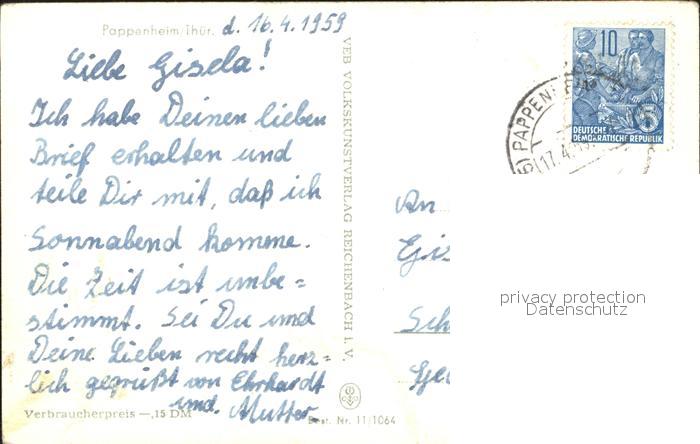 Pappenheim/Thür. d. 16.4.1959
Liebe Gisela!
Ich habe Deinen lieben
Brief erhalten und
teile Dir mit, daß ich
Sonnabend komme.
Die Zeit ist unbe=
stimmt. Sei Du und
Deine Lieben recht herz=
lich gegrüßt von Ehrhardt
und. Mutter.
Verbraucherpreis —,15 DM
Best. Nr. 11/1064
VEB VOLKSKUNSTVERLAG REICHENBACH I. V.
10
5
DEUTSCHE
DEMOKRATISCHE REPUBLIK
PAPPENHE
17.4.
An
Gis
Sch
privacy protection
Datenschutz